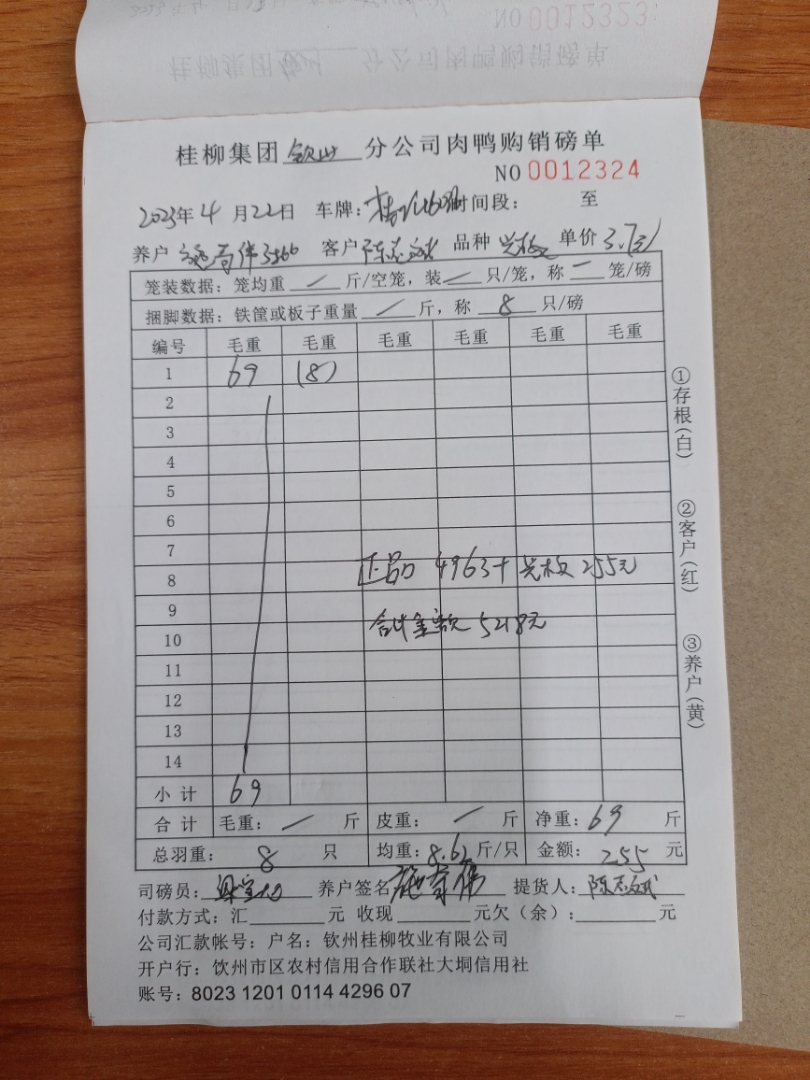 NO 0012323
桂柳集团 分公司肉鸭购销磅单
桂柳集团 钦州 分公司肉鸭购销磅单
NO 0012324
2023年 4 月 22 日 车牌: 时间段: 至
养户 客户 陈志斌 品种 单价 3.7元
笼装数据: 笼均重 / 斤/空笼, 装 / 只/笼, 称 / 笼/磅
捆脚数据: 铁筐或板子重量 / 斤, 称 8 只/磅
编号 毛重 毛重 毛重 毛重 毛重 毛重
1 69 (8)
2
3
4
5
6
7
8 正品 4963+ 255元
9
10 合计金额 5218元
11
12
13
14
小 计 69
合 计 毛重: / 斤 皮重: / 斤 净重: 69 斤
总羽重: 8 只 均重: 8.62 斤/只 金额: 255 元
司磅员: 养户签名 提货人: 陈志斌
付款方式: 汇 元 收现 元欠(余): 元
公司汇款帐号: 户名: 钦州桂柳牧业有限公司
开户行: 饮州市区农村信用合作联社大垌信用社
账号: 8023 1201 0114 4296 07
①存根(白)
②客户(红)
③养户(黄)